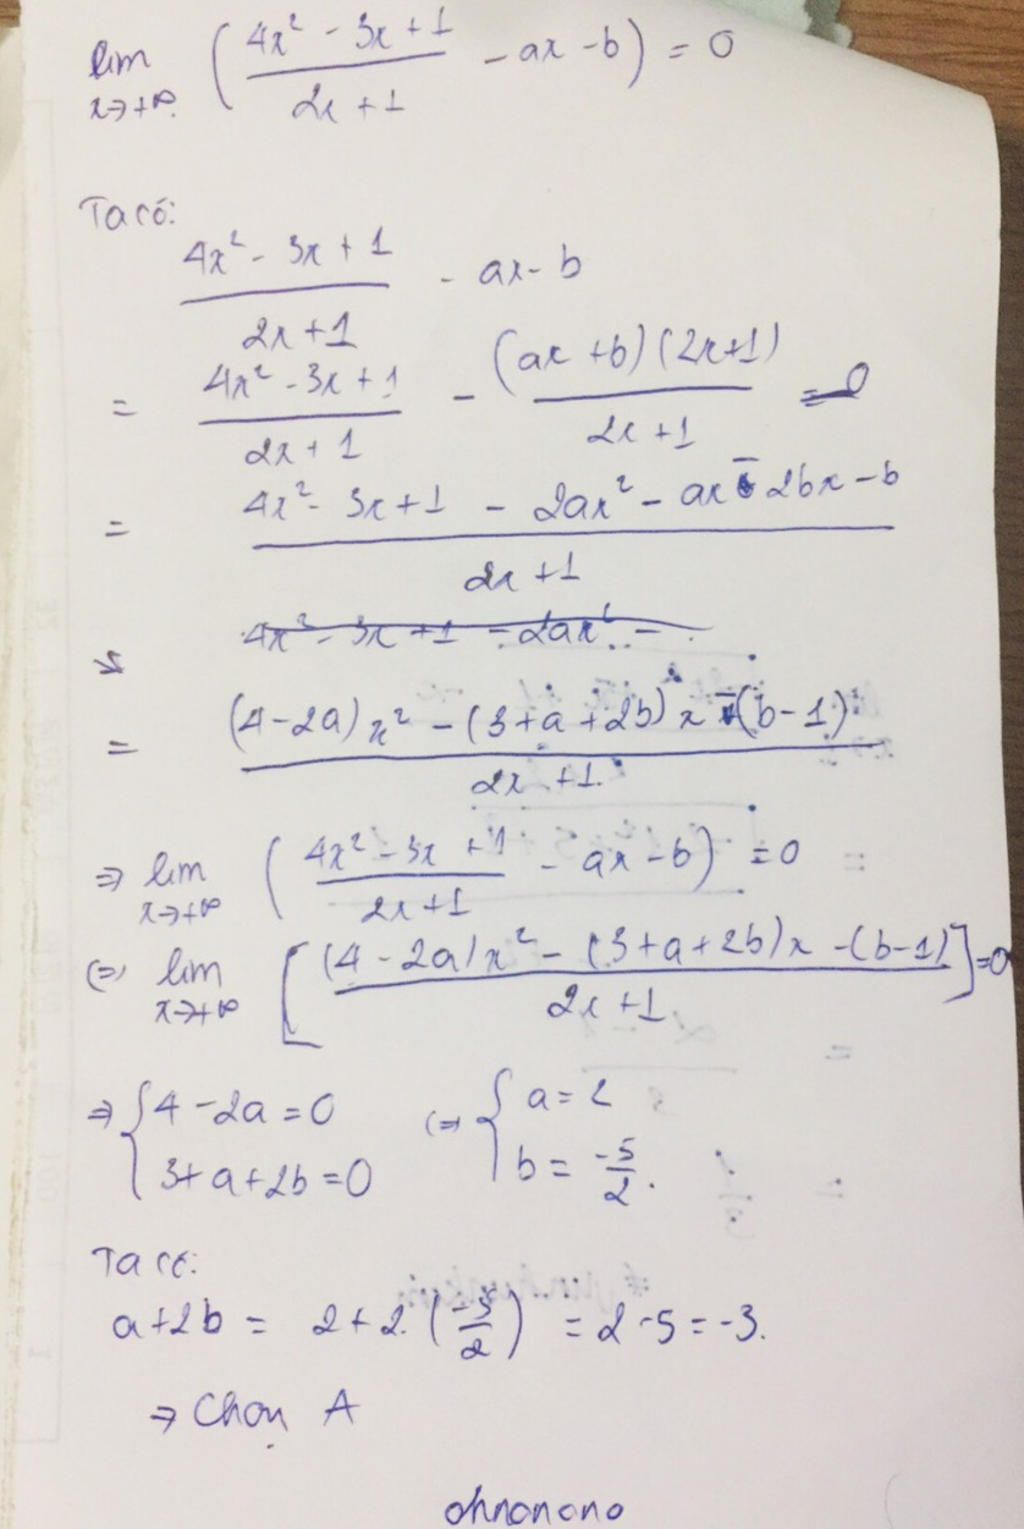 lim x→+∞ (4x² - 3x + 1 / 2x + 1 - ax - b) = 0
Ta có:
4x² - 3x + 1 / 2x + 1 - ax - b
= 4x² - 3x + 1 / 2x + 1 - (ax + b)(2x+1) / 2x + 1
= 4x² - 3x + 1 - 2ax² - ax - 2bx - b / 2x + 1
= (4-2a)x² - (3+a+2b)x - (b-1) / 2x + 1
⇒ lim x→+∞ (4x² - 3x + 1 / 2x+1 - ax - b) = 0
⇔ lim x→+∞ [(4-2a)x² - (3+a+2b)x - (b-1) / 2x + 1] = 0
⇒ { 4 - 2a = 0 ⇔ { a = 2
3+a+2b=0 b = -5/2.
Ta có:
a+2b = 2+2.(-5/2) = 2-5 = -3.
⇒ Chọn A
ohnonono